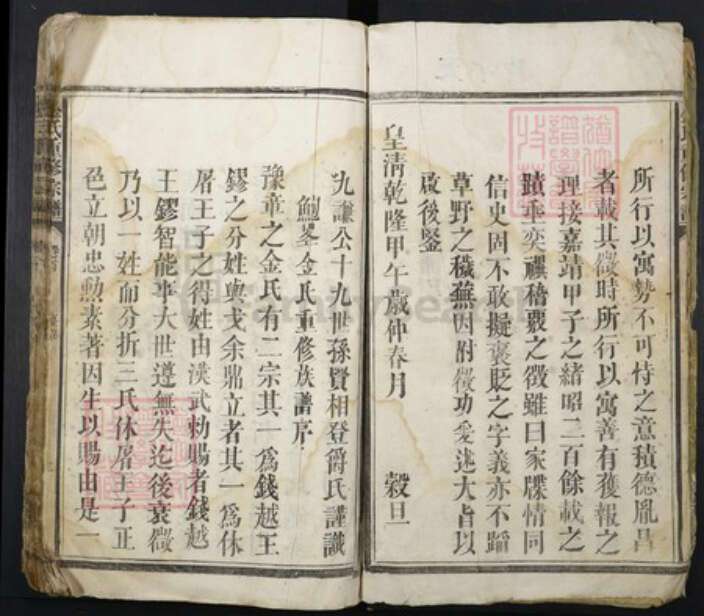 所行以寓勢不可恃之意積德胤昌
者載其微時所行以寓善有獲報之
理接嘉靖甲子之緒昭二百餘載之
蹟乖奕禩稽覈之徵雖曰家牒情同
信史固不敢擬褒貶之字義亦不蹈
草野之穢蕪因附微功爰述大旨以
啟後鋻
皇清乾隆甲午歲仲春月 穀旦
九讓公十九世孫賢相登爵氏謹識
鮑墓金氏重修族譜序
豫章之金氏有二宗其一為錢越王
鏐之分姓與戈余鼎立者其一為休
屠王子之得姓由漢武勅賜者錢越
王鏐智能事大世遵無失迄後衰微
乃以一姓而分折三氏休屠王子正
色立朝忠勲素著因生以賜由是一